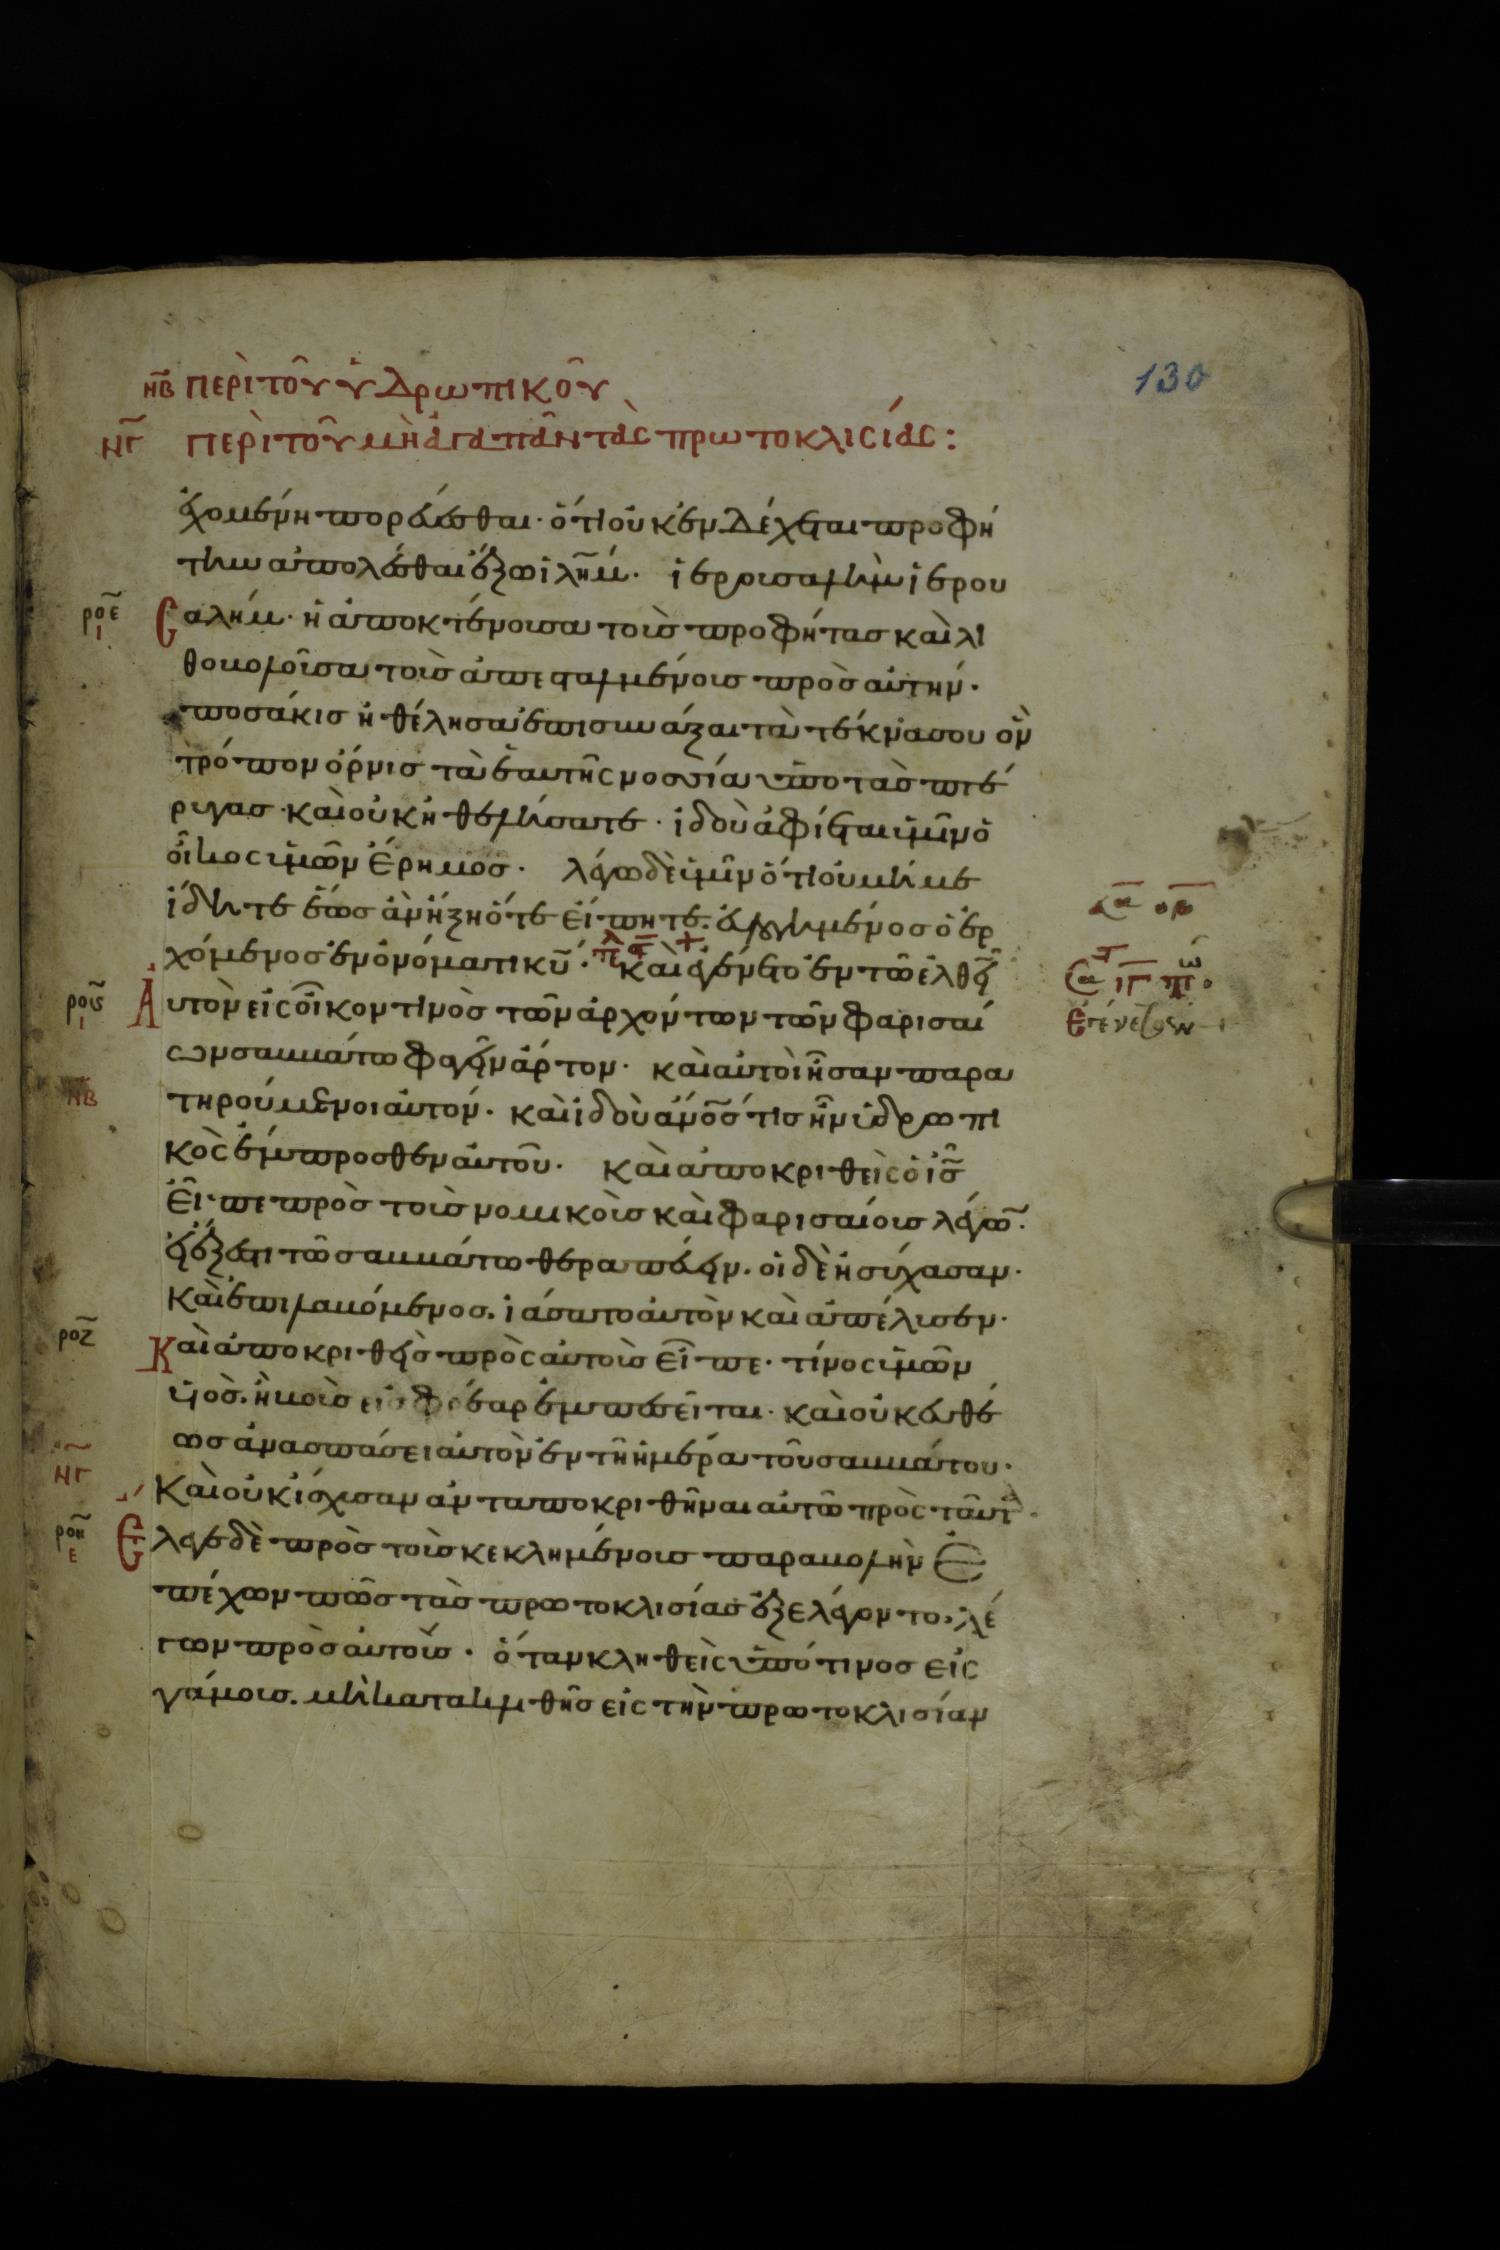 130
ΝΒ περὶ τοῦ ὑδρωπικοῦ
ΝΓ περὶ τοῦ μὴ ἀγαπᾶν τὰς πρωτοκλισίας:
ἐχομένη πορεύεσθαι· ὅτι οὐκ ἐνδέχεται προφή
την ἀπολέσθαι ἔξω ἰλῆμ· ἱερουσαλὴμ ἱερου
ροε ι σαλήμ· ἡ ἀποκτένουσα τοὺς προφήτας καὶ λι
θοβολοῦσα τοὺς ἀπεσταλμένους πρὸς αὐτήν·
ποσάκις ἠθέλησα ἐπισυνάξαι τὰ τέκνα σου ὃν
τρόπον ὄρνις τὰ ἑαυτῆς νοσσία ὑπὸ τὰς πτέ
ρυγας· καὶ οὐκ ἠθελήσατε· ἰδοὺ ἀφίεται ὑμῖν ὁ
οἶκος ὑμῶν ἔρημος· λέγω δὲ ὑμῖν ὅτι οὐ μή με
ἴδητε ἕως ἂν ἥξη ὅτε εἴπητε· εὐλογημένος ὁ ἐρ
χόμενος ἐν ὀνόματι κυ· καὶ ἐγένετο ἐν τῶ ἐλθεῖν
ρος ι αὐτὸν εἰς οἶκον τινὸς τῶν ἀρχόντων τῶν φαρισαί
ων σαββάτω φαγεῖν ἄρτον· καὶ αὐτοὶ ἦσαν παρα
ΝΒ τηρούμενοι αὐτόν· καὶ ἰδοὺ ἄνος τις ἦν ὑδρωπι
κὸς ἔμπροσθεν αὐτοῦ· καὶ ἀποκριθεὶς ὁ ις
εἶπε πρὸς τοὺς νομικοὺς καὶ φαρισαίους λέγων·
εἰ ἔξεστι τῶ σαββάτω θεραπεύειν· οἱ δὲ ἡσύχασαν·
καὶ ἐπιλαβόμενος· ἰάσατο αὐτὸν καὶ ἀπέλυσεν·
ροζ Καὶ ἀποκριθεὶς πρὸς αὐτοὺς εἶπε· τίνος ὑμῶν
υἱὸς· ἢ βοῦς εἰς φρέαρ ἐμπεσεῖται· καὶ οὐκ εὐθέ
ως ἀνασπάσει αὐτὸν ἐν τῆ ἡμέρα τοῦ σαββάτου·
ΝΓ καὶ οὐκ ἴσχυσαν ἀνταποκριθῆναι αὐτῶ πρὸς ταῦτα·
ροη ε Ἔλεγε δὲ πρὸς τοὺς κεκλημένους παραβολὴν ἐ
πέχων πῶς τὰς πρωτοκλισίας ἐξελέγοντο· λέ
γων πρὸς αὐτούς· ὅταν κληθεὶς ὑπό τινος εἰς
γάμους· μὴ κατακλιθῆς εἰς τὴν πρωτοκλισίαν